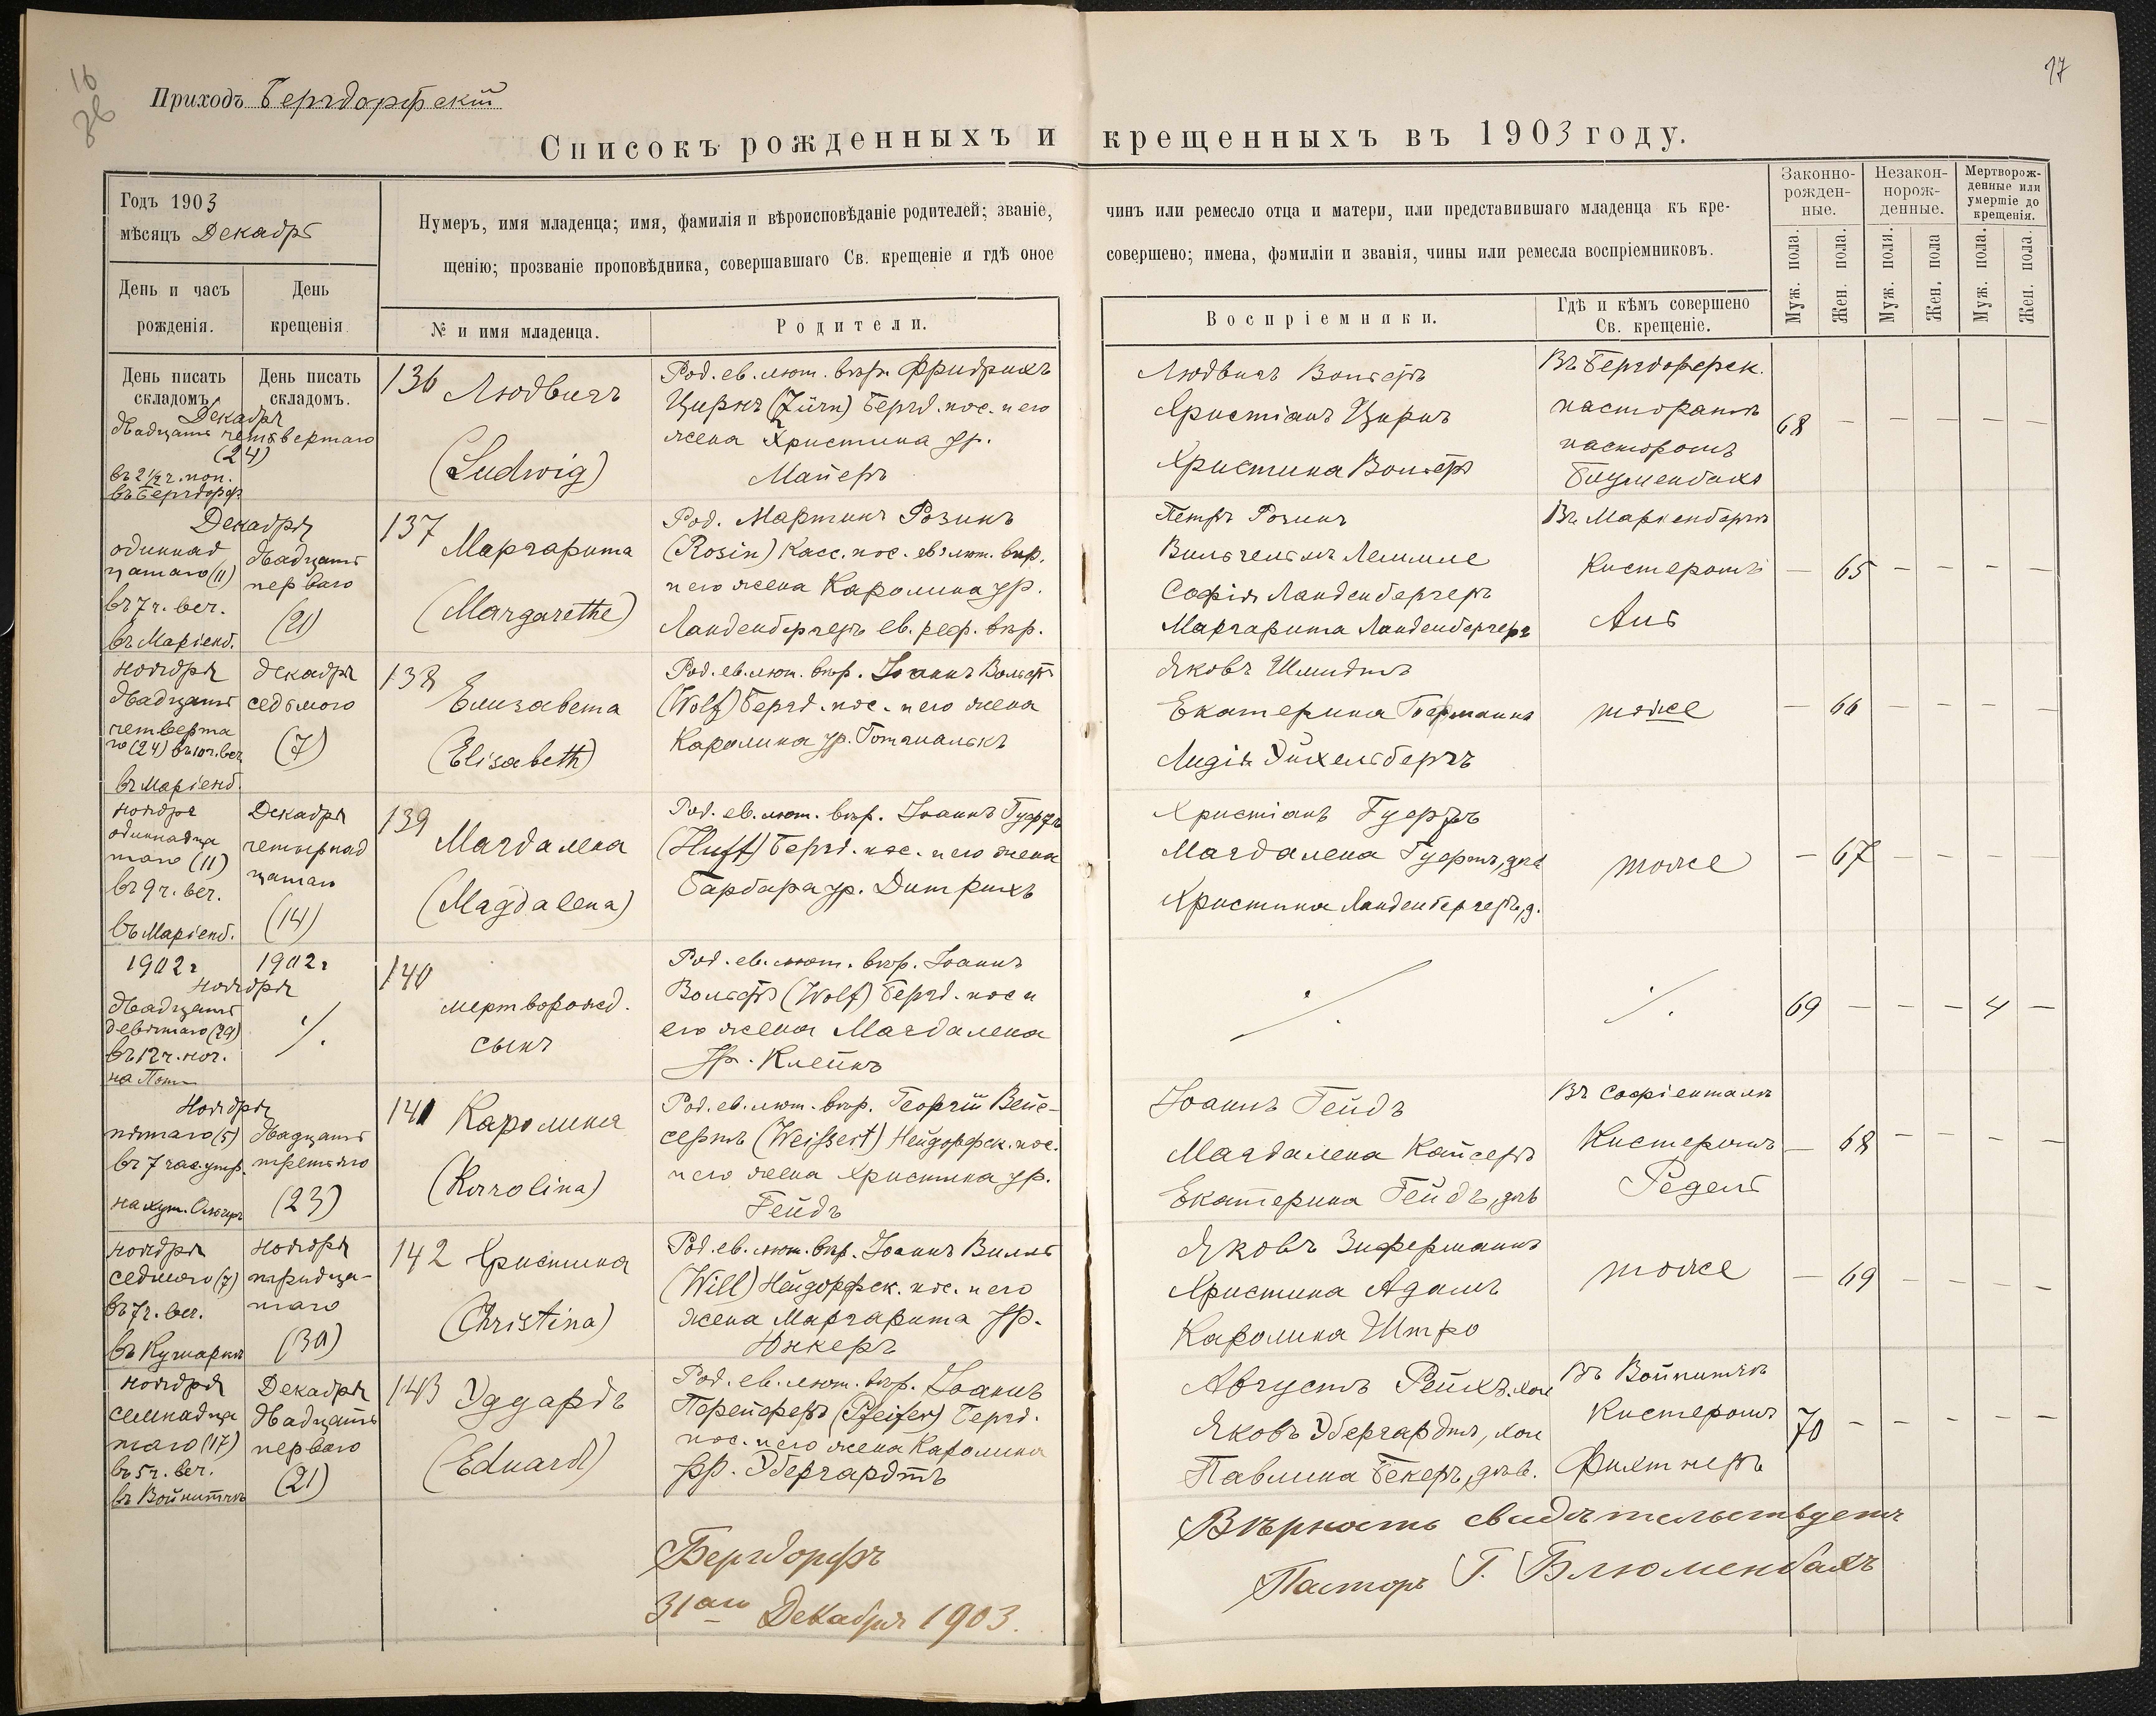 16
36
17
Приходъ Бергдорфскій
Списокъ рожденныхъ и крещенныхъ въ 1903 году.
Годъ 1903
мѣсяцъ Декабрь
День и часъ рожденія.
День крещенія.
Нумеръ, имя младенца; имя, фамилія и вѣроисповѣданіе родителей; званіе, чинъ или ремесло отца и матери, или представившаго младенца къ кре-
щенію; прозваніе проповѣдника, совершавшаго Св. крещеніе и гдѣ оное совершено; имена, фамиліи и званія, чины или ремесла воспріемниковъ.
№ и имя младенца.
Родители.
Воспріемники.
Гдѣ и кѣмъ совершено
Св. крещеніе.
Законно-
рожден-
ные.
Незакон-
норож-
денные.
Мертворож-
денные или
умершіе до
крещенія.
Муж. пола.
Жен. пола.
Муж. пола.
Жен. пола
Муж. пола.
Жен. пола.
День писать
складомъ.
День писать
складомъ.
Декабря
двадцать четвертаго
(24)
въ 2½ ч. поп.
въ Бергдорф
136 Людвигъ
(Ludwig)
Род. ев. лют. вѣр. Фридрихъ
Цирнъ (Zürn) Бергд. пос. и его
жена Христина ур.
Майеръ
Людвигъ Вольфъ
Христіанъ Цирнъ
Христина Вольфъ
Въ Бергдорфск.
пасторатѣ
пасторомъ
Блуменбахъ
68 — — — — —
Декабря
одиннад
цатаго (11)
въ 7 ч. веч.
въ Маріенб.
двадцать
перваго
(21)
137
Маргарита
(Margarethe)
Род. Мартинъ Розинъ
(Rosin) Касс. пос. ев. лют. вѣр.
и его жена Каролина ур.
Ланденбергеръ ев. реф. вѣр.
Петръ Розинъ
Вильгельмъ Леммле
Софія Ланденбергеръ
Маргарита Ланденбергеръ
Въ Маріенбергѣ
Кистеромъ
— 65 — — — —
ноября
двадцать
четверта
го (24) въ 10 ч. веч.
въ Маріенб.
декабря
седьмого
(7)
138
Елизавета
(Elisabeth)
Род. ев. лют. вѣр. Іоаннъ Вольфъ
(Wolf) Бергд. пос. и его жена
Каролина ур.
Яковъ Шмидтъ
Екатерина Германнъ
Лидія Эйхельбергъ
тоже
— 66 — — — —
ноября
одиннадца
таго (11)
въ 9 ч. веч.
въ Маріенб.
Декабря
четырнад
цатаго
(14)
139
Магдалена
(Magdalena)
Род. ев. лют. вѣр. Іоаннъ Гуффъ
(Huff) Бергд. пос. и его жена
Барбара ур. Дитрихъ
Христіанъ Гуффъ
Магдалена Гуффъ, дѣв
Христина Ланденбергеръ, д.
тоже
— 67 — — — —
1902 г
1902 г
Ноября
двадцать
девятаго (29)
въ 12 ч. ноч.
./.
140
мертворожд.
сынъ
Род. ев. лют. вѣр. Іоаннъ
Вольфъ (Wolf) Бергд. пос и
его жена Магдалена
ур. Клейнъ
./.
./.
69 — — — 4 —
Ноября
пятаго (5)
въ 7 час. утр.
на хут.
двадцать
третьяго
(23)
141 Каролина
(Karolina)
Род. ев. лют. вѣр. Георгій Вейс-
сертъ (Weissert) Нейдорфск. пос.
и его жена Христина ур.
Гейдъ
Іоаннъ Гейдъ
Магдалена Кайсеръ
Екатерина Гейдъ, дѣв
Въ Софіенталѣ
Кистеромъ
Редель
— 68 — — — —
ноября
седмого (7)
въ 7 ч. веч.
въ Кумарны
ноября
тридца-
таго
(30)
142 Христина
(Christina)
Род. ев. лют. вѣр. Іоаннъ Вилль
(Will) Нейдорфск. пос. и его
жена Маргарита ур.
Юнкеръ
Яковъ Зиферманнъ
Христина Адамъ
Каролина Штро
тоже
— 69 — — — —
ноября
семнадца
таго (17)
въ 5 ч. веч.
въ Войничѣ
Декабря
двадцать
перваго
(21)
143 Эдуардъ
(Eduard)
Род. ев. лют. вѣр. Іоаннъ
Пфейферъ (Pfeifer) Бергд.
пос. и его жена Каролина
ур. Эбергардтъ
Августъ Рейхъ, хол
Яковъ Эбергардтъ, хол
Павлина Бекеръ, дѣв.
Въ Войничѣ
Кистеромъ
Фихтнеръ
70 — — — — —
Бергдорфъ
31аго Декабря 1903.
Вѣрность свидѣтельствуетъ
Пасторъ Г. Блюменбахъ